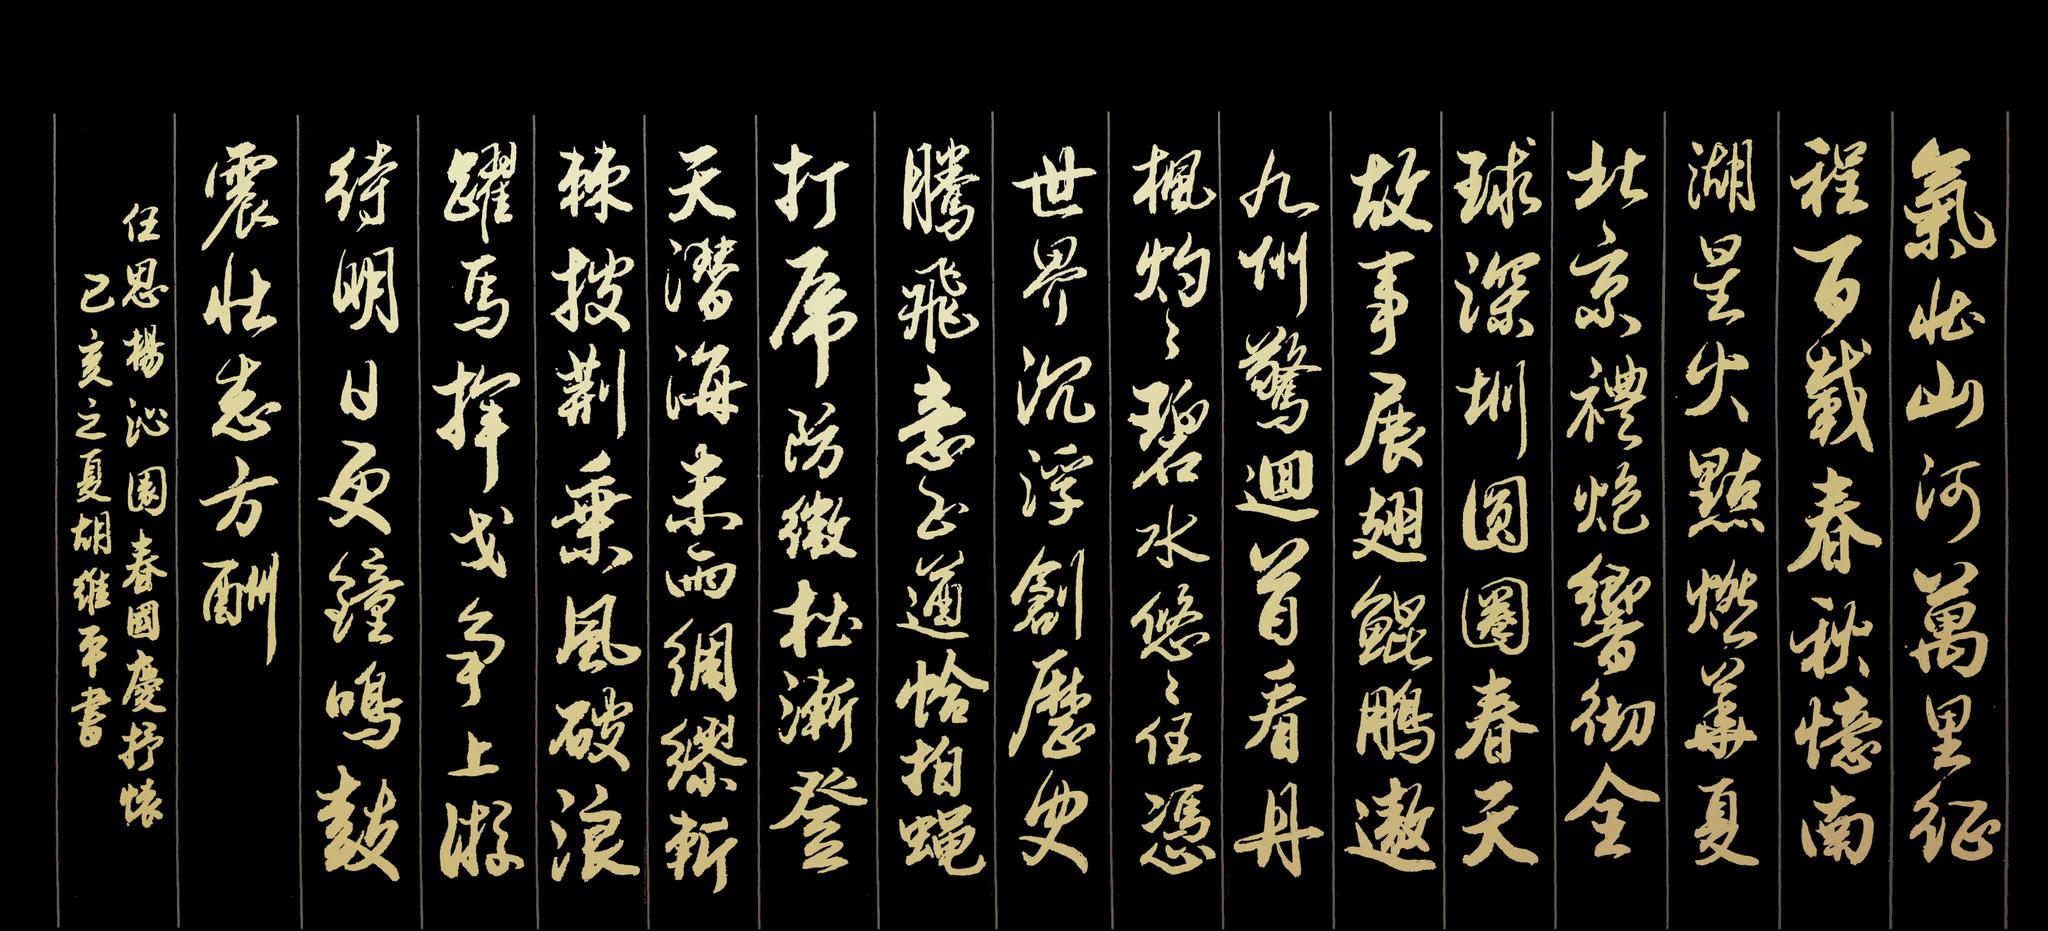 氣壯山河萬里征
程百載春秋憶南
湖星火點燃華夏
北京禮炮響彻全
球深圳圆圈春天
故事展翅鯤鵬遨
九州驚迴首看丹
楓灼々碧水悠々任憑
世界沉浮創歷史
騰飛意正遒恰拍蝇
打虎防微杜漸登
天潛海未雨綢繆斬
棘披荆乘風破浪
躍馬揮戈争上游
待明日更鐘鳴鼓
震壯志方酬
任思楊沁園春國慶抒懷
己亥之夏胡維平書